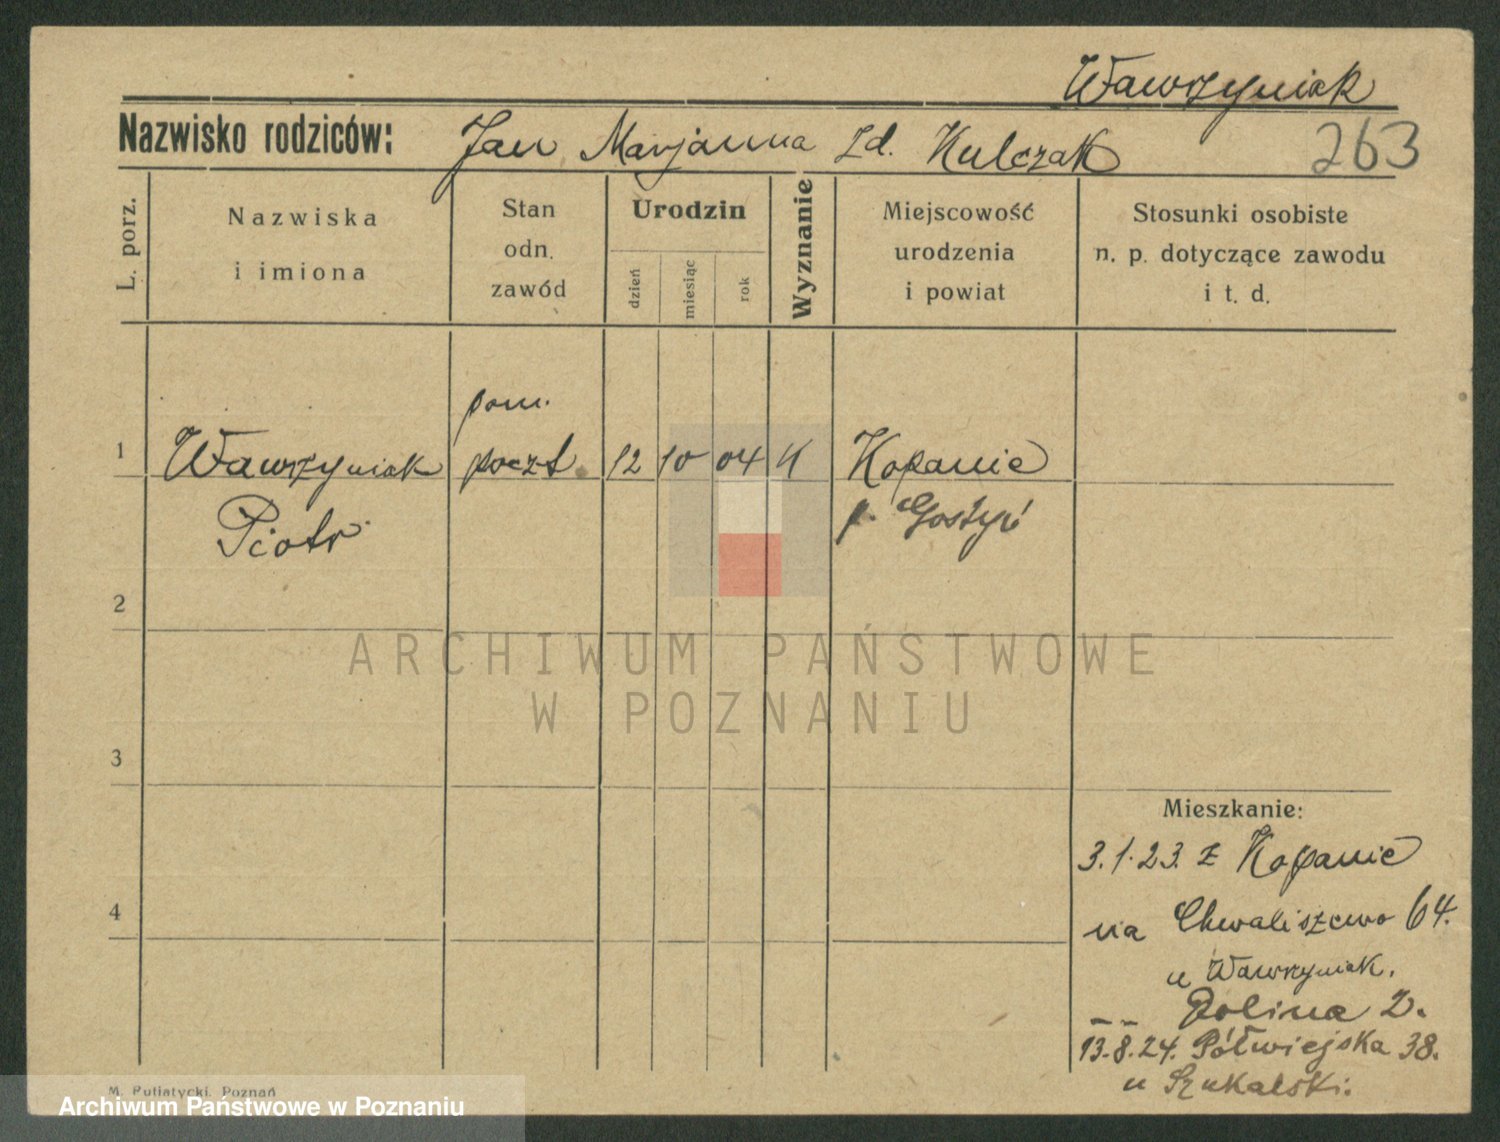 Wawrzyniak
Nazwisko rodziców: Jan Marjanna zd. Kulczak
263
L. porz.
Nazwiska
i imiona
Stan
odn.
zawód
Urodzin
dzień
miesiąc
rok
Wyznanie
Miejscowość
urodzenia
i powiat
Stosunki osobiste
n. p. dotyczące zawodu
i t. d.
pom.
1 Wawrzyniak poczt. 12 10 04 K Kopanie
Piotr p. Gostyń
2
ARCHIWUM PAŃSTWOWE
W POZNANIU
3
Mieszkanie:
3.1.23. z Kopanie
4
na Chwaliszewo 64.
u Wawrzyniak.
Dolina 2.
13.8.24. Półwiejska 38.
u Szukalski.
M. Putiatycki, Poznań
Archiwum Państwowe w Poznaniu